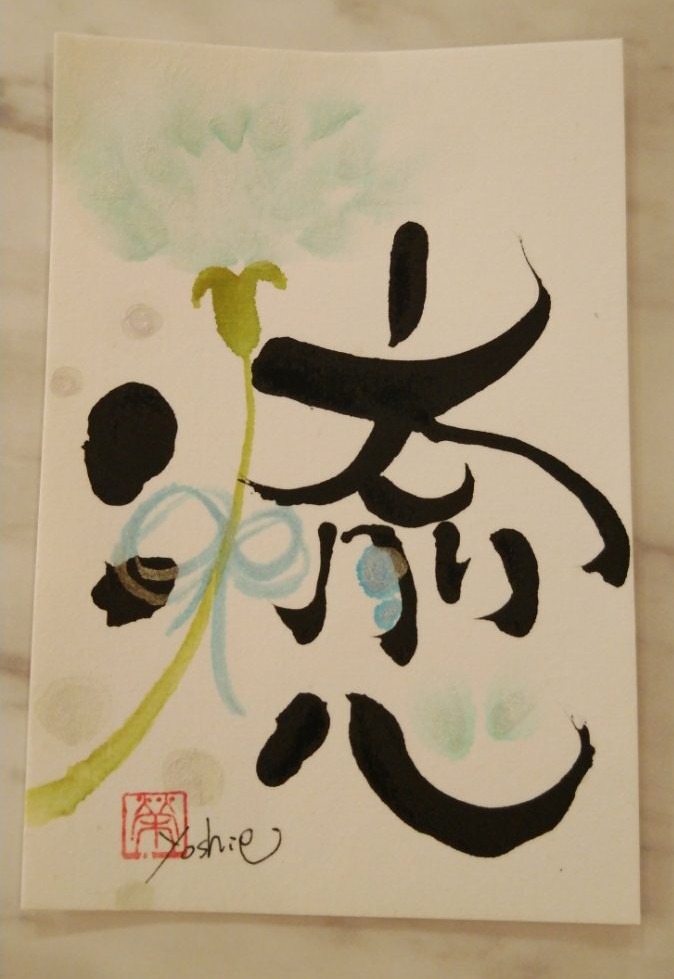 癒
Yoshie